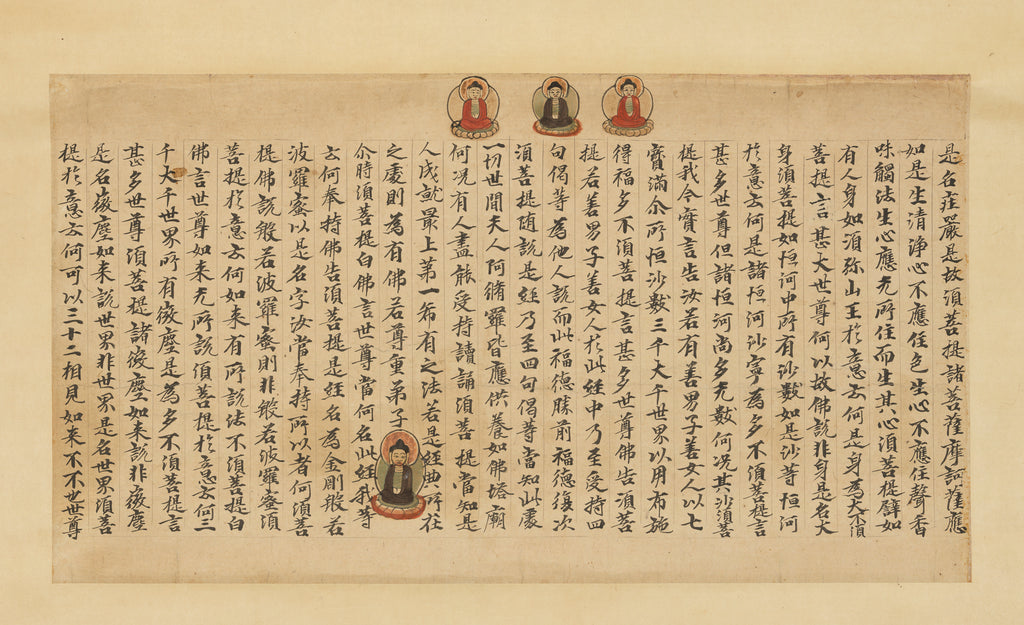 是名莊嚴是故須菩提諸菩薩摩訶薩應
如是生清淨心不應住色生心不應住聲香
味觸法生心應无所住而生其心須菩提譬如
有人身如須弥山王於意云何是身為大不須
菩提言甚大世尊何以故佛說非身是名大
身須菩提如恒河中所有沙數如是沙等恒河
於意云何是諸恒河沙寧為多不須菩提言
甚多世尊但諸恒河尚多无數何況其沙須菩
提我今實言告汝若有善男子善女人以七
寶滿尒所恒沙數三千大千世界以用布施
得福多不須菩提言甚多世尊佛告須菩
提若善男子善女人於此經中乃至受持四
句偈等為他人說而此福德勝前福德復次
須菩提随說是經乃至四句偈等當知此處
一切世間天人阿修羅皆應供養如佛塔廟
何況有人盡能受持讀誦須菩提當知是
人成就最上第一希有之法若是經典所在
之處則為有佛若尊重弟子
尒時須菩提白佛言世尊當何名此經我等
云何奉持佛告須菩提是經名為金剛般若
波羅蜜以是名字汝當奉持所以者何須菩
提佛說般若波羅蜜則非般若波羅蜜須
菩提於意云何如来有所說法不須菩提白
佛言世尊如来无所說須菩提於意云何三
千大千世界所有微塵是為多不須菩提言
甚多世尊須菩提諸微塵如来說非微塵
是名微塵如来說世界非世界是名世界須菩
提於意云何可以三十二相見如来不不世尊